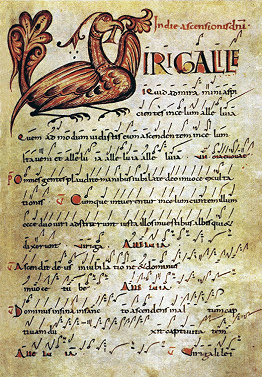 In die ascensionis dni
VIRI GALILE
I Quid admiramini aspi
cientes in celum alle luia
Quem ad modum vidistis eum ascendentem in celum
ita veni et alle lu ia alle luia alle luia
Omnes gentes plaudite manibus iubilate deo in voce exulta
tionis Cumque intuerentur in celum euntem illum
ecce duo viri adstiterunt iuxta illos in vestibus albis qui &
dixerunt Viri ga Alle lu ia
Ascendit deus in iubilatione & dominus
in voce tu be Alle lu ia
Dominus in sina in sancto ascendens in al tum cap
tivam du xit captivita tem
Alle lu ia Viri galilei